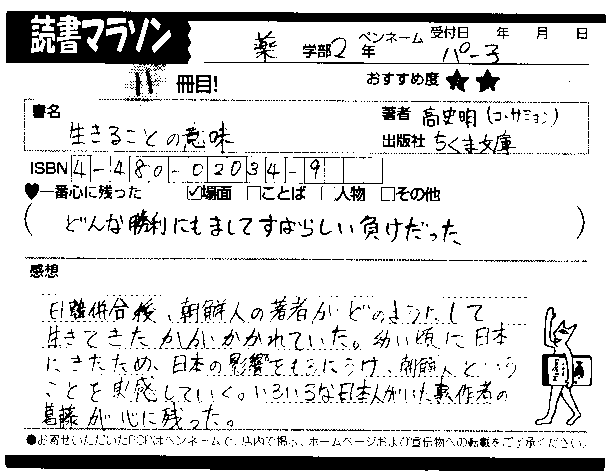 読書マラソン
薬 学部 2 年 ペンネーム パーチ 受付日 年 月 日
11 冊目! おすすめ度 ★★
書名 生きることの意味
著者 高史明(コ・サミョン)
出版社 ちくま文庫
ISBN 4-480-02034-9
♥一番心に残った ☑場面 □ことば □人物 □その他
(どんな勝利にもましてすばらしい負けだった)
感想
日韓併合後、朝鮮人の著者がどのようにして
生きてきたかがかかれていた。幼い頃に日本
にきたため、日本の影響をもろにうけ、朝鮮人という
ことを実感していく。いろいろな日本人がいた事、作者の
葛藤が心に残った。
●お寄せいただいたPOPはペンネームで、店内で掲示、ホームページおよび宣伝物への転載をご了承ください。